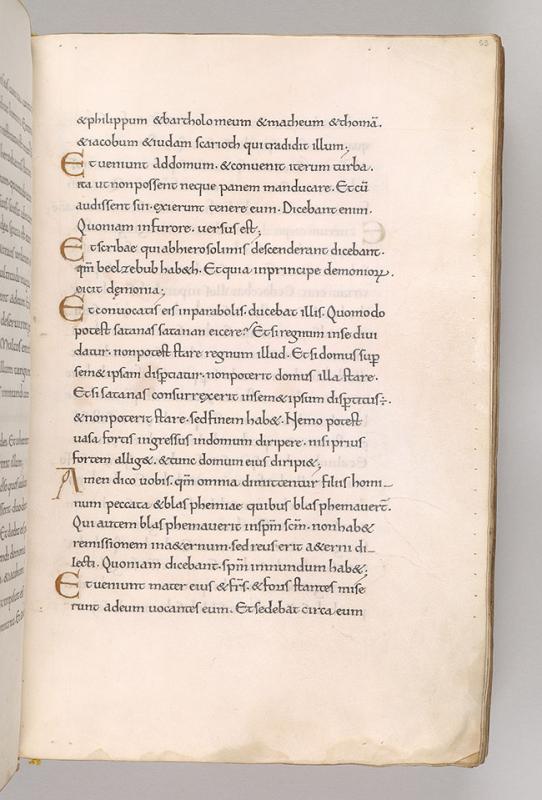 &philippum &bartholomeum &matheum &thomā.
&iacobum &iudam scarioth qui tradidit illum;
Et ueniunt addomum. &conuenit iterum turba.
ita ut nonpossent neque panem manducare. Etcū
audissent sui. exierunt tenere eum. Dicebant enim.
Quoniam infurore. uersus est;
Et scribae quiabhierosolimis descenderant dicebant.
qm̄ beelzebub hab&h. Etquia inprincipe demonioꝝ.
eicit demonia;
Et conuocatis eis inparabolis. dicebat illis. Quomodo
potest satanas satanan eicere? Etsi regnum inse diui
datur. nonpotest stare regnum illud. Etsi domus sup
sem&ipsam dispertiatur. nonpoterit domus illa stare.
Etsi satanas consurrexerit insem&ipsum dispertitus÷.
&nonpoterit stare. sedfinem hab&. Nemo potest
uasa fortis ingressus indomum diripere. nisi prius
fortem allig&. &tunc domum eius diripi&;
Amen dico uobis. qm̄ omnia dimittentur filiis homi-
num peccata &blasphemiae quibus blasphemauerc̄.
Qui autem blasphemauerit insp̄m sc̄m. nonhab&
remissionem ina&ernum. sed reus erit a&erni di-
lecti. Quoniam dicebant. sp̄m inmundum hab&;
Et ueniunt mater eius &fr̄s. &foris stantes mise
runt adeum uocantes eum. Etsedebat circa eum